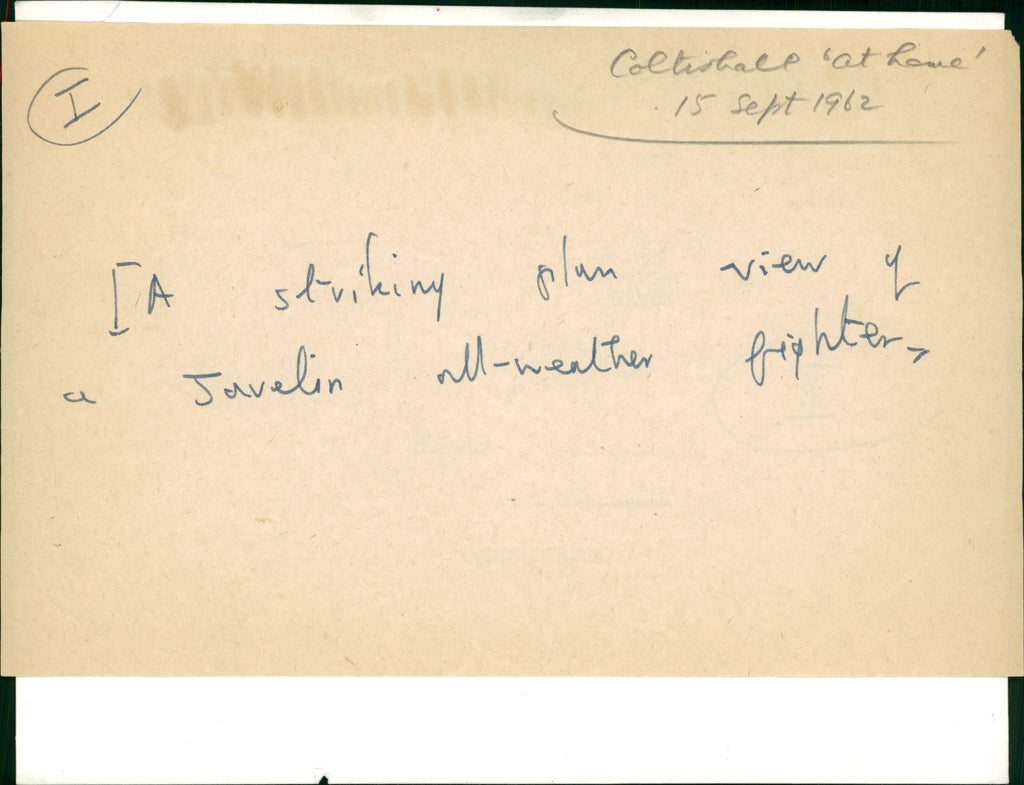 I
Coltishall 'at home'
15 Sept 1962
[A striking plan view of
a Javelin all-weather fighter.